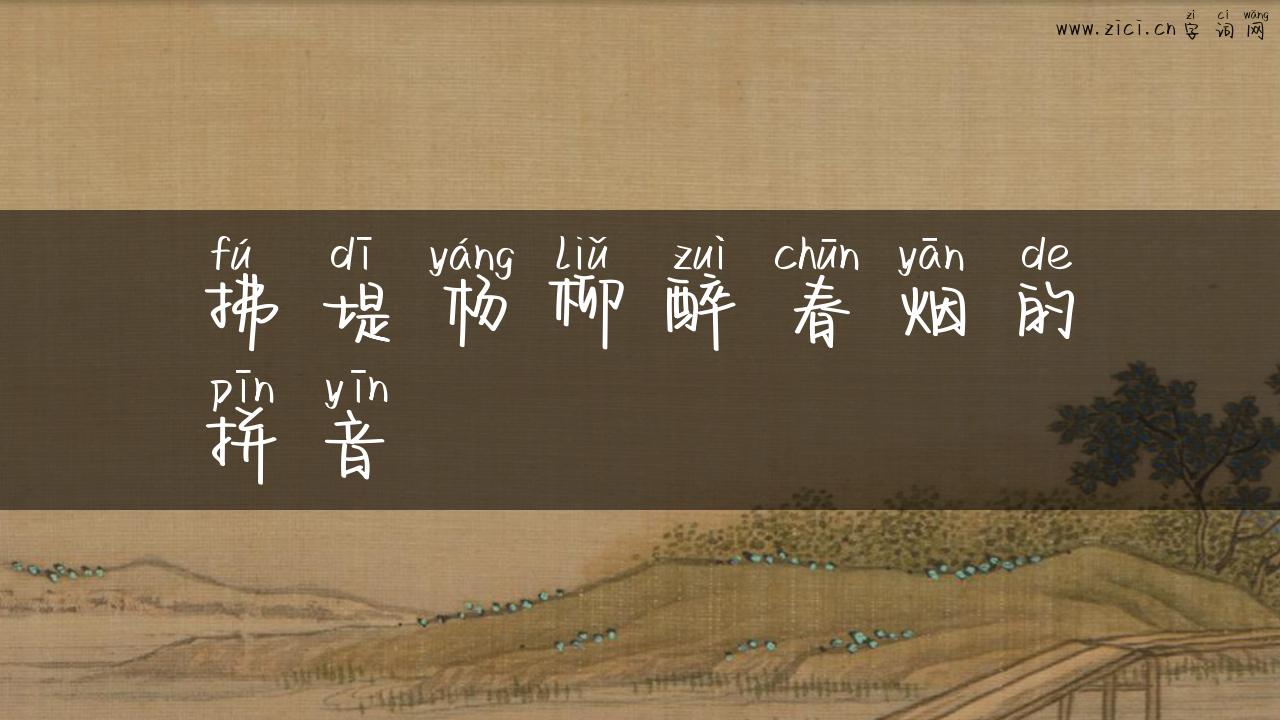 zì cí wǎng
www.zici.cn 字词网
fú dī yáng liǔ zuì chūn yān de
拂堤杨柳醉春烟的
pīn yīn
拼音